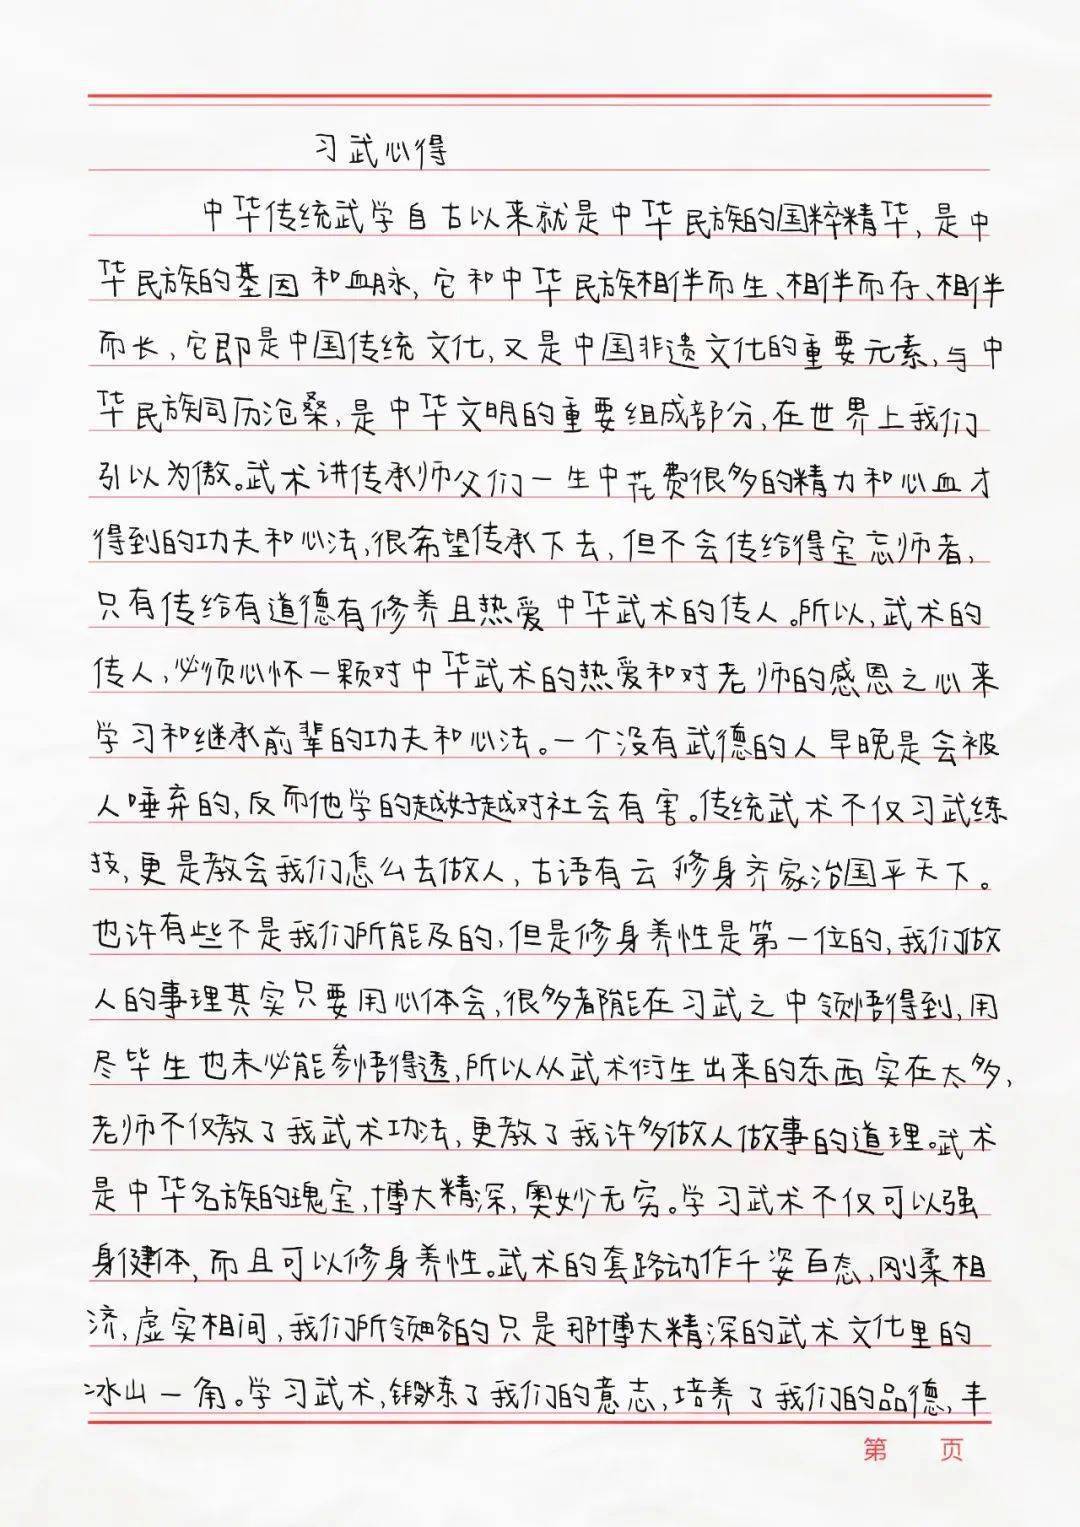 习武心得
中华传统武学自古以来就是中华民族的国粹精华,是中
华民族的基因和血脉,它和中华民族相伴而生、相伴而存、相伴
而长,它即是中国传统文化,又是中国非遗文化的重要元素,与中
华民族同历沧桑,是中华文明的重要组成部分,在世界上我们
引以为傲。武术讲传承师父们一生中花费很多的精力和心血才
得到的功夫和心法,很希望传承下去,但不会传给得宝忘师者,
只有传给有道德有修养且热爱中华武术的传人。所以,武术的
传人,必须心怀一颗对中华武术的热爱和对老师的感恩之心来
学习和继承前辈的功夫和心法。一个没有武德的人早晚是会被
人唾弃的,反而他学的越好越对社会有害。传统武术不仅习武练
技,更是教会我们怎么去做人,古语有云修身齐家治国平天下。
也许有些不是我们所能及的,但是修身养性是第一位的,我们做
人的事理其实只要用心体会,很多都能在习武之中领悟得到,用
尽毕生也未必能参悟得透,所以从武术衍生出来的东西实在太多,
老师不仅教了我武术功法,更教了我许多做人做事的道理。武术
是中华名族的瑰宝,博大精深,奥妙无穷。学习武术不仅可以强
身健体,而且可以修身养性。武术的套路动作千姿百态,刚柔相
济,虚实相间,我们所领略的只是那博大精深的武术文化里的
冰山一角。学习武术,锻炼了我们的意志,培养了我们的品德,丰
第 页